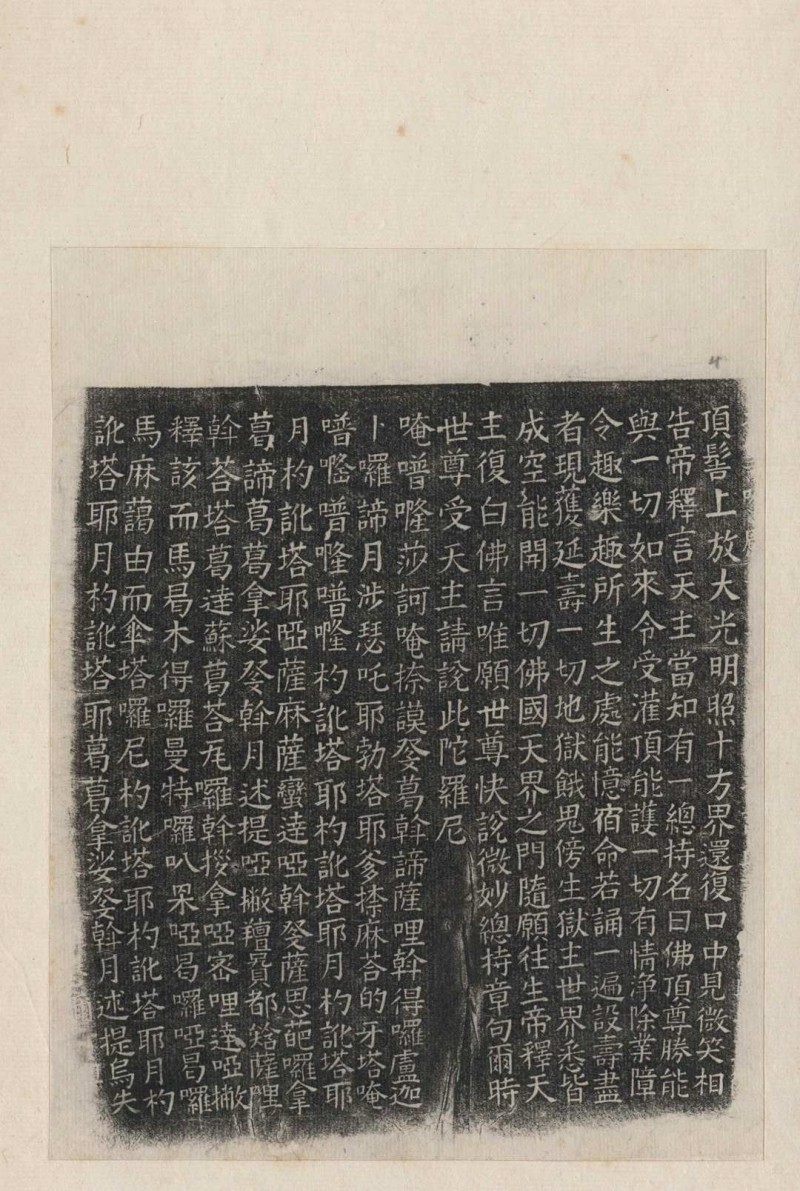 頂髻上放大光明照十方界還復口中見微笑相
告帝釋言天主當知有一總持名曰佛頂尊勝能
與一切如來令受灌頂能護一切有情淨除業障
令趣樂趣所生之處能憶宿命若誦一遍設壽盡
者現獲延壽一切地獄餓鬼傍生獄主世界悉皆
成空能開一切佛國天界之門隨願往生帝釋天
主復白佛言唯願世尊快說微妙總持章句爾時
世尊受天主請說此陀羅尼
唵噆㘕莎訶唵捺謨癹葛斡諦薩哩斡得囉盧迦
卜囉諦月涉瑟吒耶勃塔耶爹捺麻荅的牙塔唵
噆㘕噆㘕噆㘕杓訛塔耶杓訛塔耶月杓訛塔耶
月杓訛塔耶啞薩麻薩蠻達啞斡癹薩思葩囉拿
葛諦葛葛拿娑癹斡月述提啞撇羶贊都唅薩哩
斡荅塔葛達蘇葛荅嚩囉斡拶拿啞密哩達啞撇
釋該而馬曷木得囉曼特囉叭杲啞曷囉啞曷囉
馬麻藹由而傘塔囉尼杓訛塔耶杓訛塔耶月杓
訛塔耶月杓訛塔耶葛葛拿娑癹斡月述提烏失